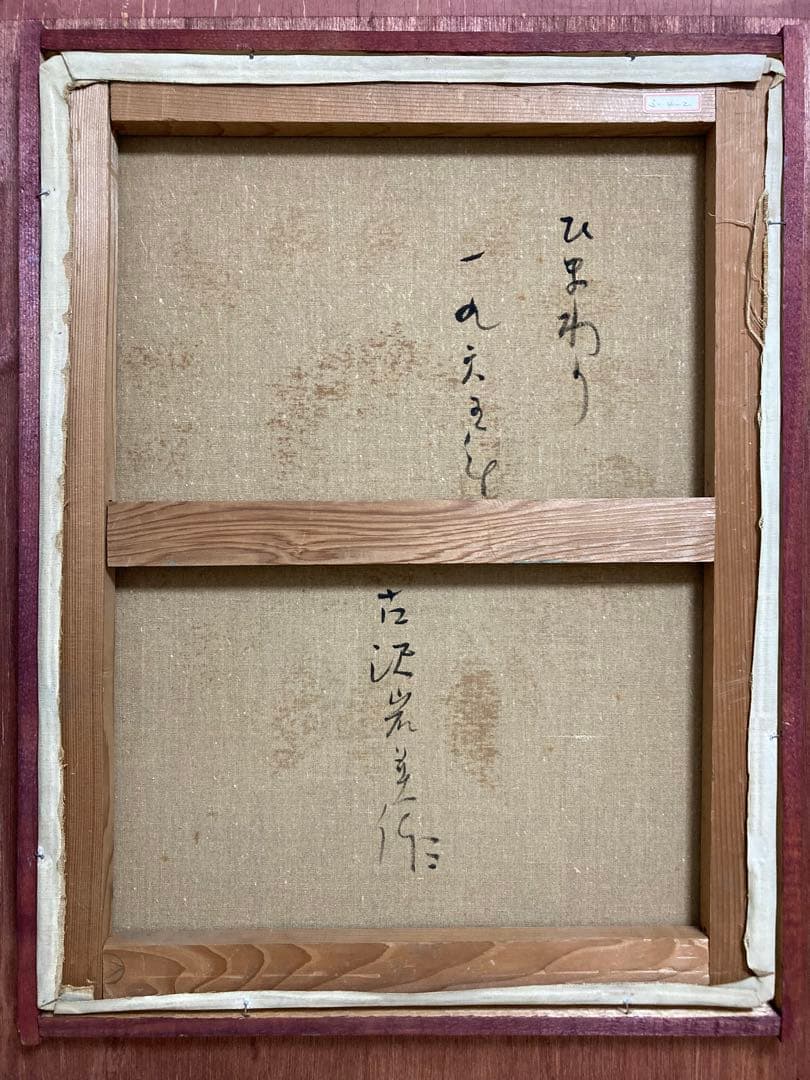 ひまわり
一九六五年
古沢岩美作